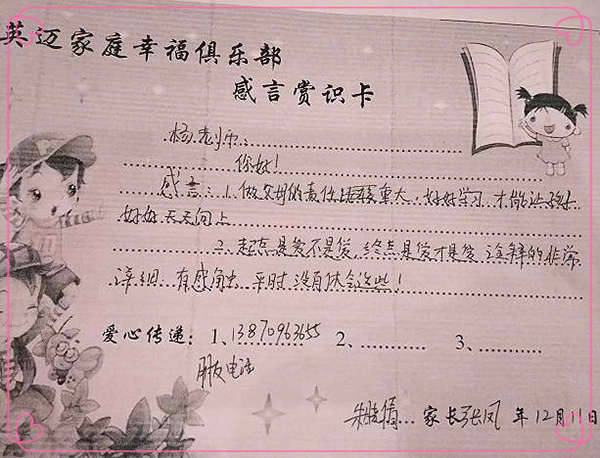 英迈家庭幸福俱乐部
感言赏识卡
杨老师：
你好！
感言：1、做父母的责任比较重大，好好学习才能让孩子
好好天天向上
2、起点是爱不是爱，终点是爱才是爱，这课的非常
详细，有感角虫，平时没有体会这些！
爱心传递：1、13870963655 2、 3、
朋友电话
家长张凤 年12月11日